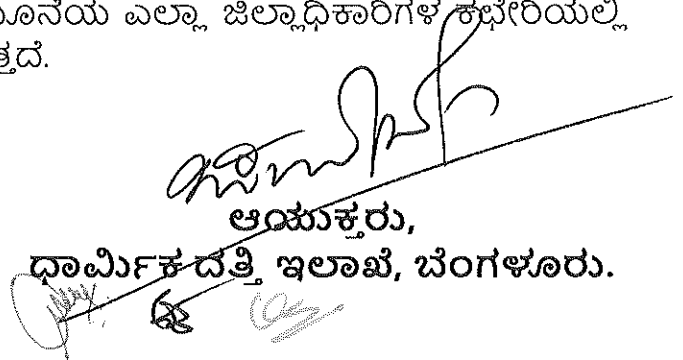 ಎಲ್ಲಾ ಜಿಲ್ಲಾಧಿಕಾರಿಗಳ ಕಛೇರಿಯಲ್ಲಿ
ಆಯುಕ್ತರು,
ಧಾರ್ಮಿಕ ದತ್ತಿ ಇಲಾಖೆ, ಬೆಂಗಳೂರು.